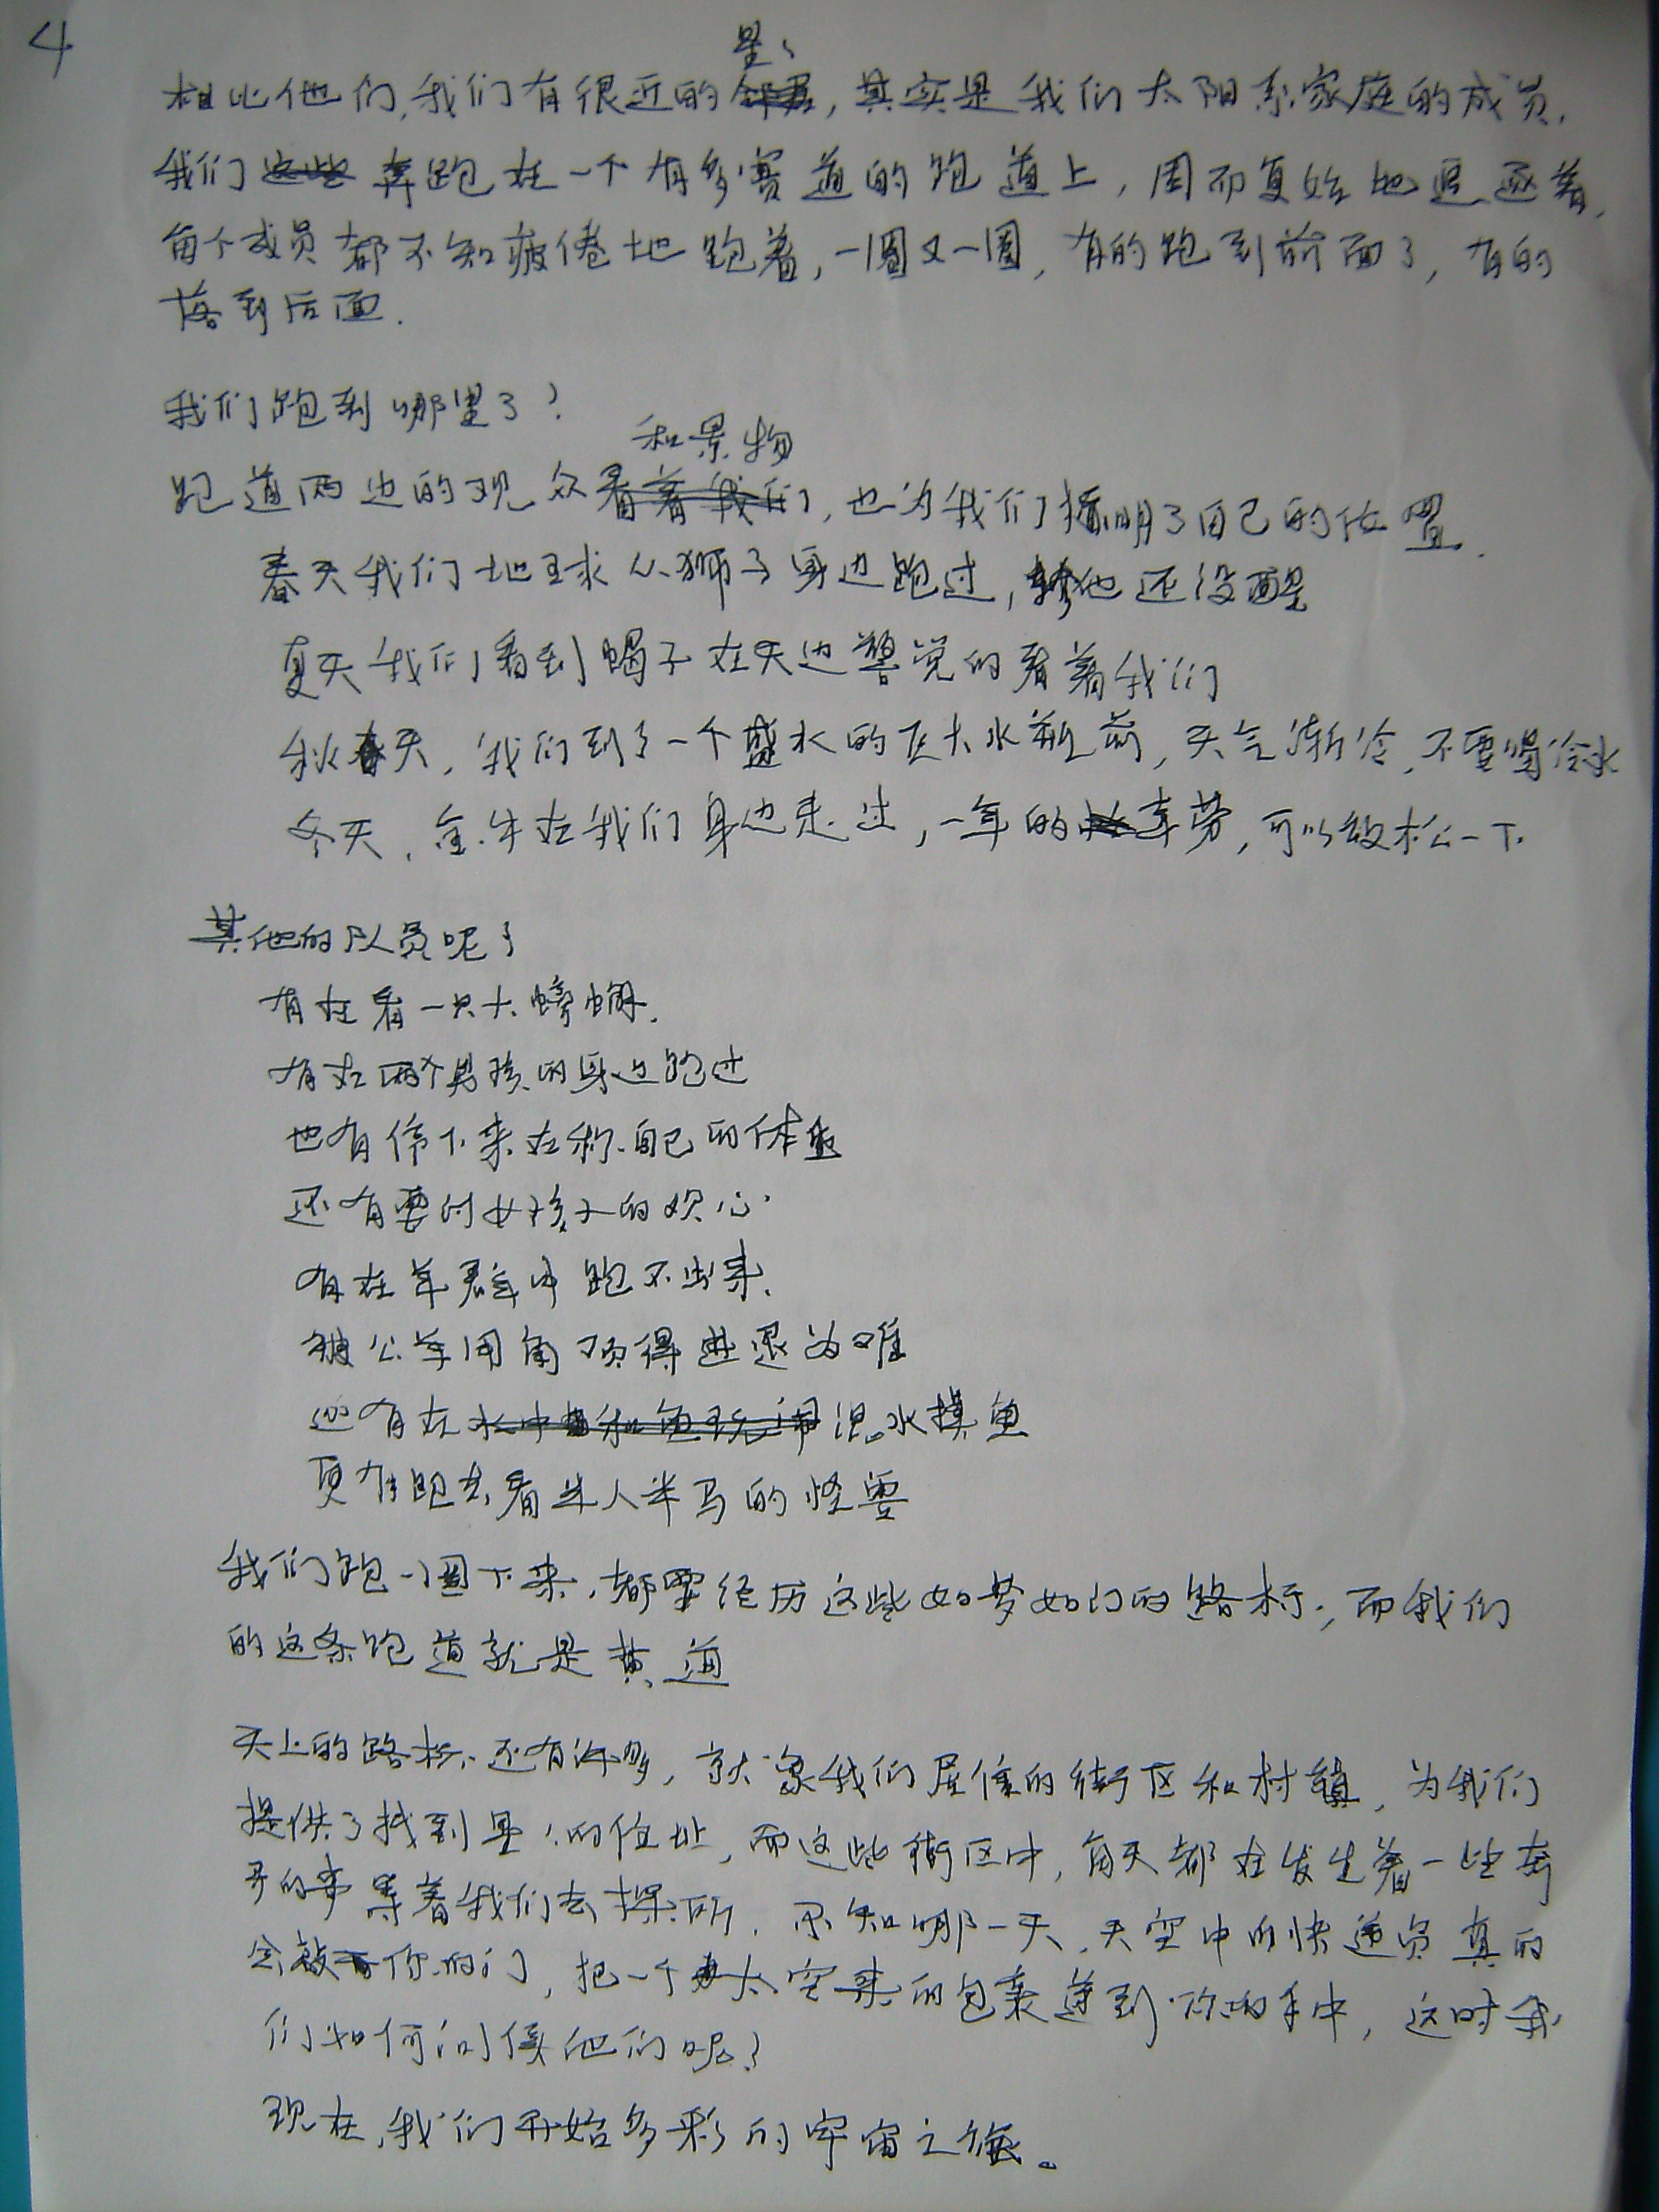 4
星
相比他们,我们有很近的,其实是我们太阳系家庭的成员.
我们这些奔跑在一个有多赛道的跑道上,周而复始地追逐着,
每个成员都不知疲倦地跑着,一圈又一圈,有的跑到前面了,有的
落到后面.
我们跑到哪里了?
和景物
跑道两边的观众看着我们,也为我们标明了自己的位置.
春天我们地球从狮子身边跑过,他还没醒
夏天我们看到蝎子在天边警觉的看着我们
秋天,我们到了一个盛水的巨大水瓶前,天气渐冷,不要喝冷水
冬天,金牛在我们身边走过,一年的辛劳,可以放松一下.
其他的队员呢?
有在看一只大螃蟹.
有在两个男孩的身边跑过
也有停下来在称自己的体重
还有要讨女孩子的欢心
有在羊群中跑不出来.
被公羊用角顶得进退为难
还有在水中和鱼玩闹混水摸鱼
更有跑去看半人半马的怪兽
我们跑一圈下来,都要经历这些如梦如幻的路标,而我们
的这条跑道就是黄道
天上的路标还有许多,就象我们居住的街区和村镇,为我们
提供了找到星的住址,而这些街区中,每天都在发生着一些奇
异的事等着我们去探听.不知哪一天,天空中的快递员真的
会敲你的门,把一个太空来的包裹递到你的手中,这时我
们如何问候他们呢?
现在,我们开始多彩的宇宙之旅。